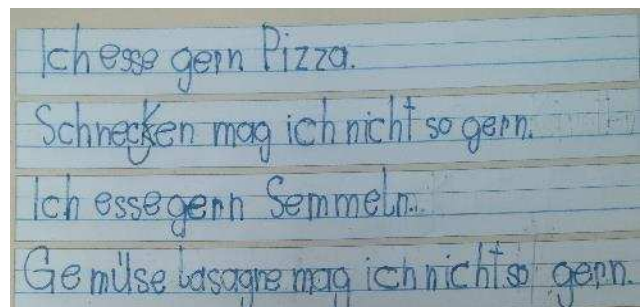 Ich esse gern Pizza.
Schnecken mag ich nicht so gern.
Ich esse gern Semmeln.
Gemüse lasagne mag ich nicht so gern.